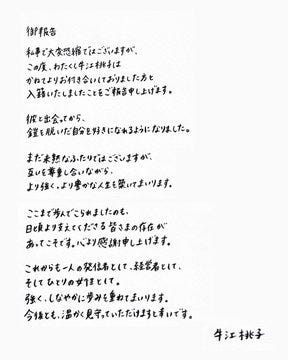 御報告
私事で大変恐縮ではございますが、
この度、わたくし牛江桃子は
かねてよりお付き合いしておりました方と
入籍いたしましたことをご報告申し上げます。
彼と出会ってから、
鎧を脱いだ自分を好きになれるようになりました。
まだ未熟なふたりではございますが、
互いを尊重し合いながら、
より強く、より豊かな人生を築いてまいります。
ここまで歩んでこられましたのも、
日頃より支えてくださる皆さまの存在が
あってこそです。心より感謝申し上げます。
これからも一人の発信者として、経営者として、
そしてひとりの女性として。
強く、しなやかに歩みを重ねてまいります。
今後とも、温かく見守っていただけますと幸いです。
牛江桃子